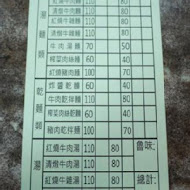 清燉牛肉麵 110 80
紅燒牛雜麵 110 80
清燉牛雜麵 110 80
牛肉湯麵 70 50
榨菜肉絲麵 60 40
紅燒豬肉麵 100 70
炸醬乾麵 60 40
牛肉乾拌麵 110 80
榨菜乾拌麵 60 40
豬肉乾拌麵 100 70
紅燒牛肉湯 110 80
清燉牛肉湯 110 80
紅燒牛雜湯 110 80
湯麵類
乾麵類
湯
魯味:
總計: